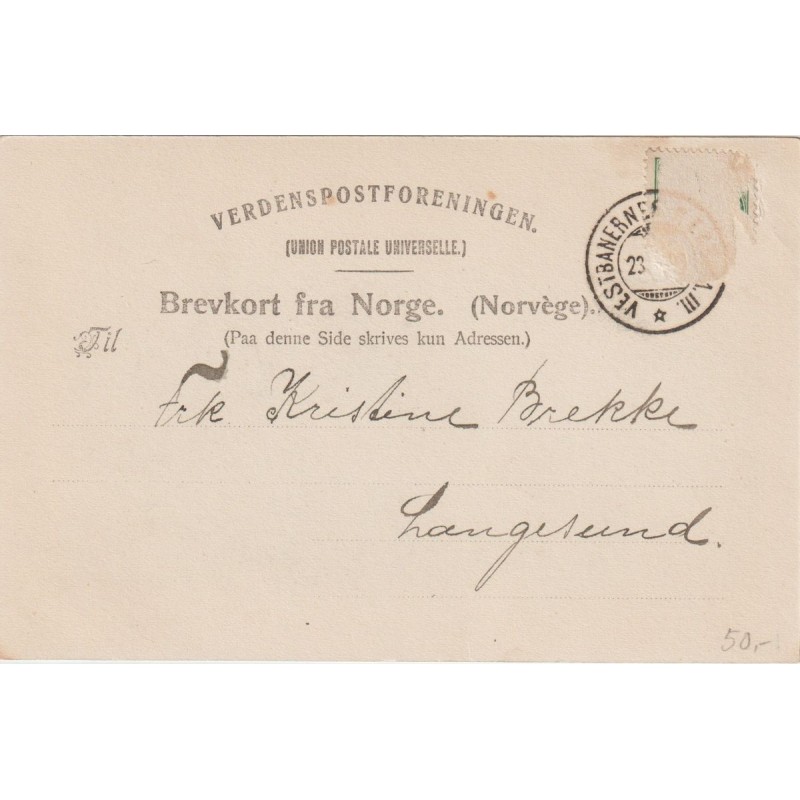 VERDENSPOSTFORENINGEN.
(UNION POSTALE UNIVERSELLE.)
Brevkort fra Norge. (Norvège).
(Paa denne Side skrives kun Adressen.)
Til
Frk Kristine Brekke
Langesund.
VESTBANERNES
23
III.
50,-